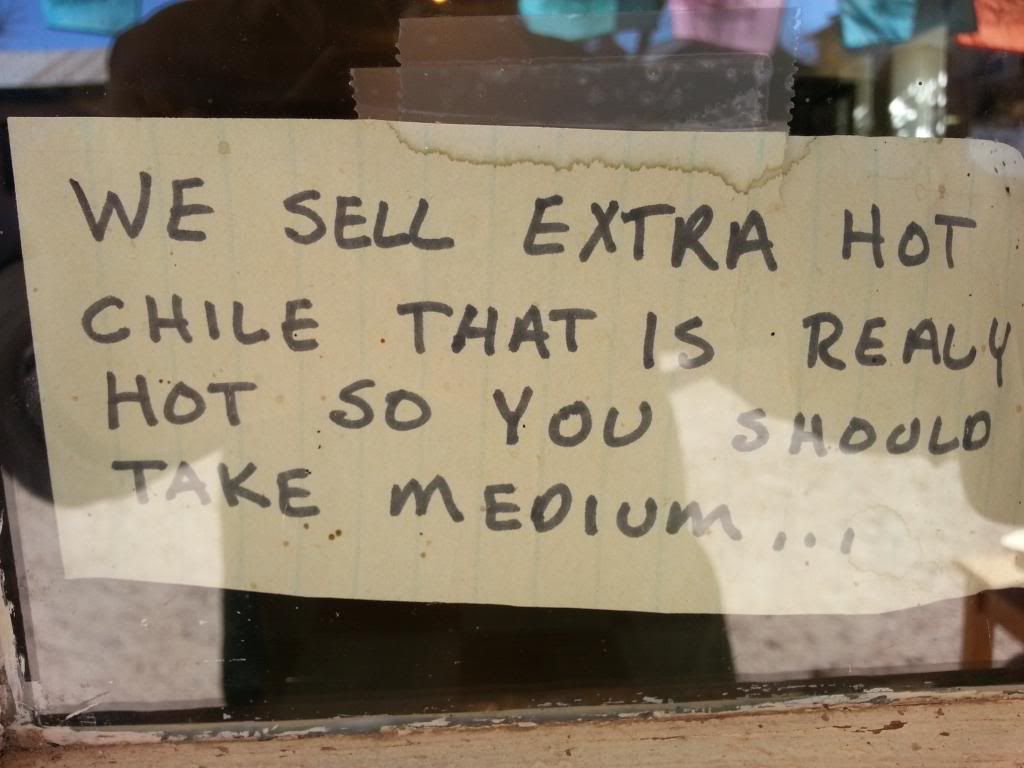 WE SELL EXTRA HOT
CHILE THAT IS REALY
HOT SO YOU SHOULD
TAKE MEDIUM...